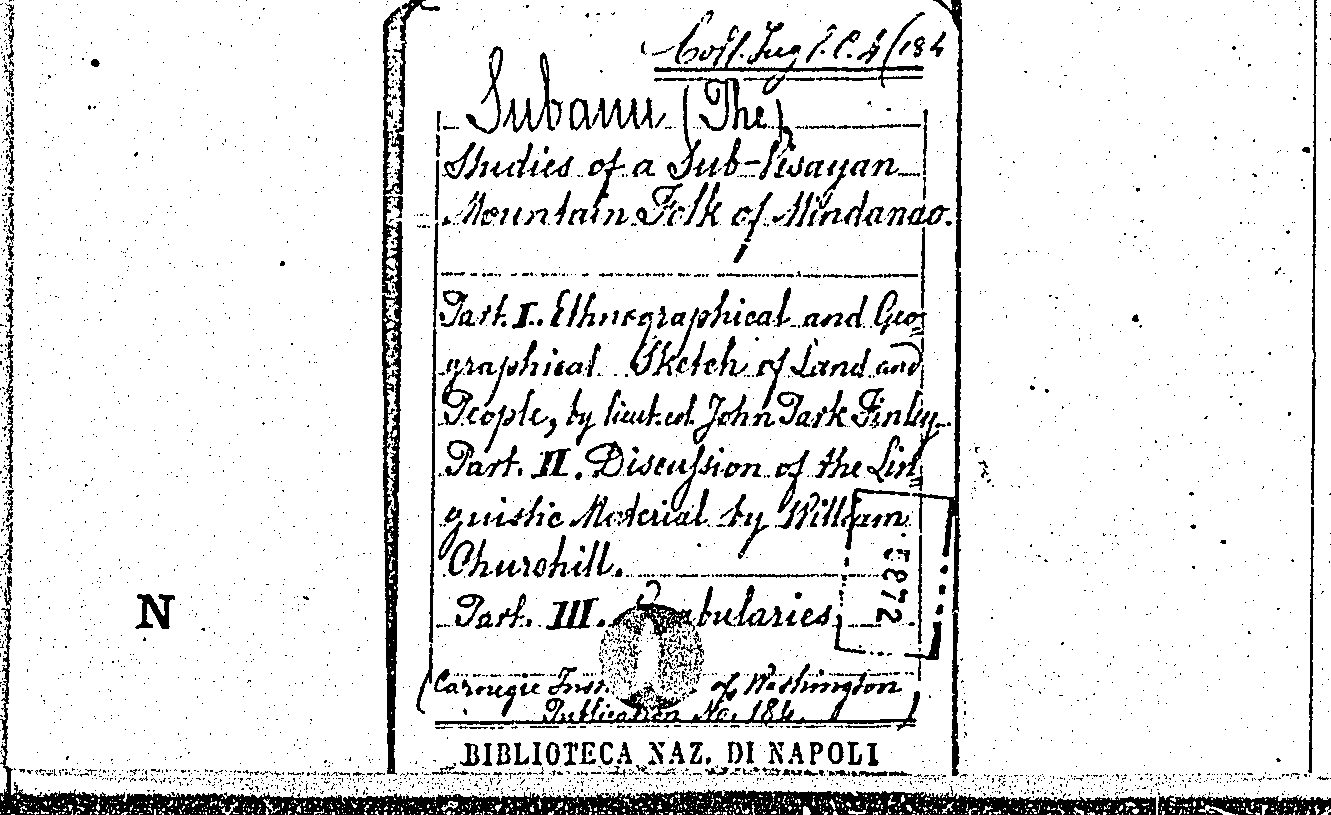 Coll. Ing. I. C. 4 (184
Subanu (The)
Studies of a Sub-Visayan
Mountain Folk of Mindanao.
Part. I. Ethnographical and Geo=
graphical Sketch of Land and
People, by lieut. col. John Park Finley.
Part. II. Discussion of the Lin=
guistic Material by William
Churchill.
Part. III. Vocabularies.
5872
(Carnegie Inst. of Washington
Publication No. 184.)
BIBLIOTECA NAZ. DI NAPOLI
N